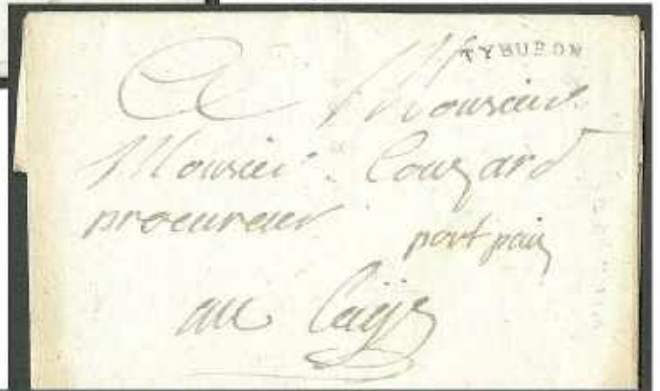 TYBURON
A Monsieur
Monsieur Couzard
procureur
port paiy
au Caÿe